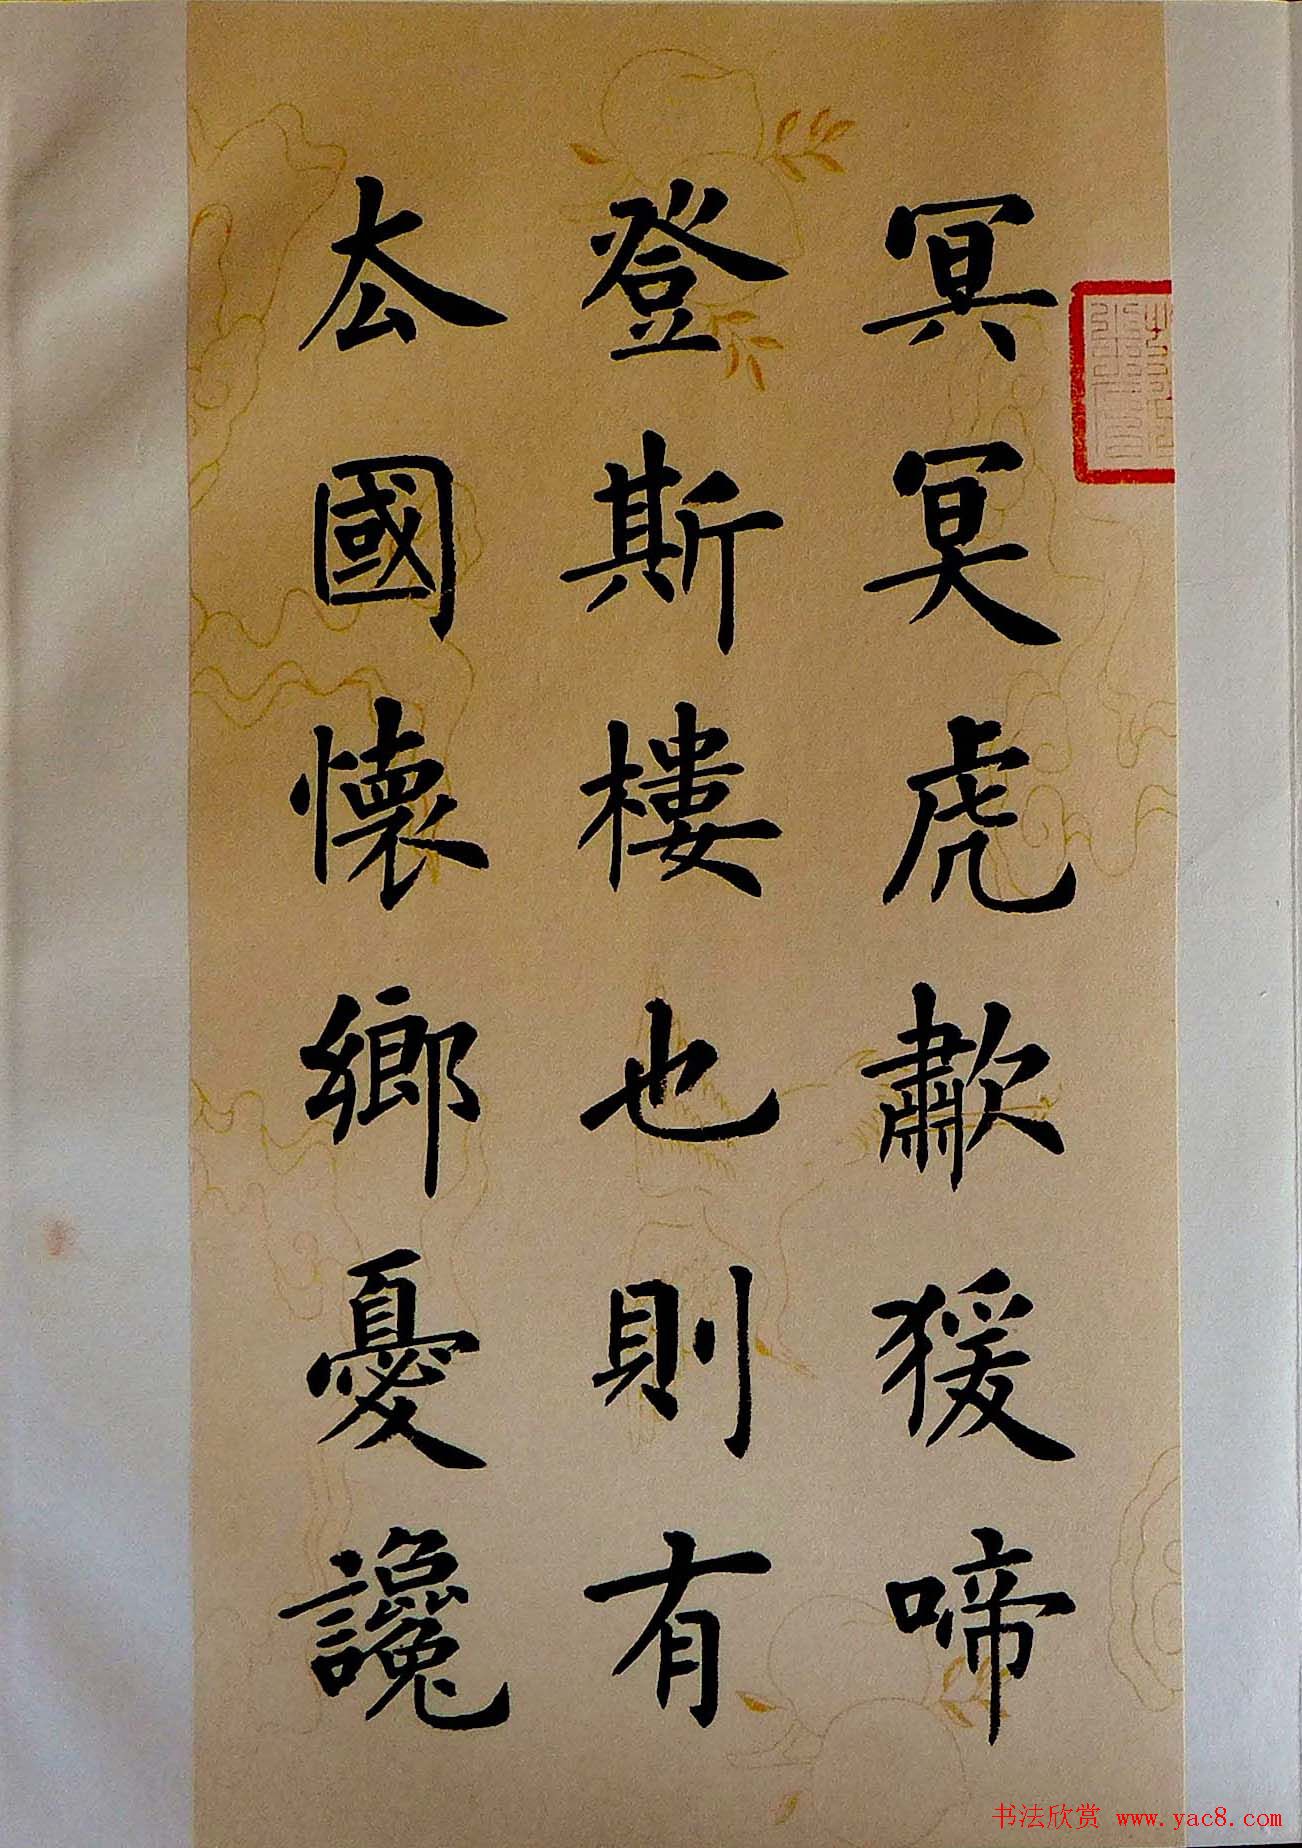 冥冥虎歗猨啼
登斯樓也則有
去國懷鄉憂讒
书法欣赏 www.yac8.com